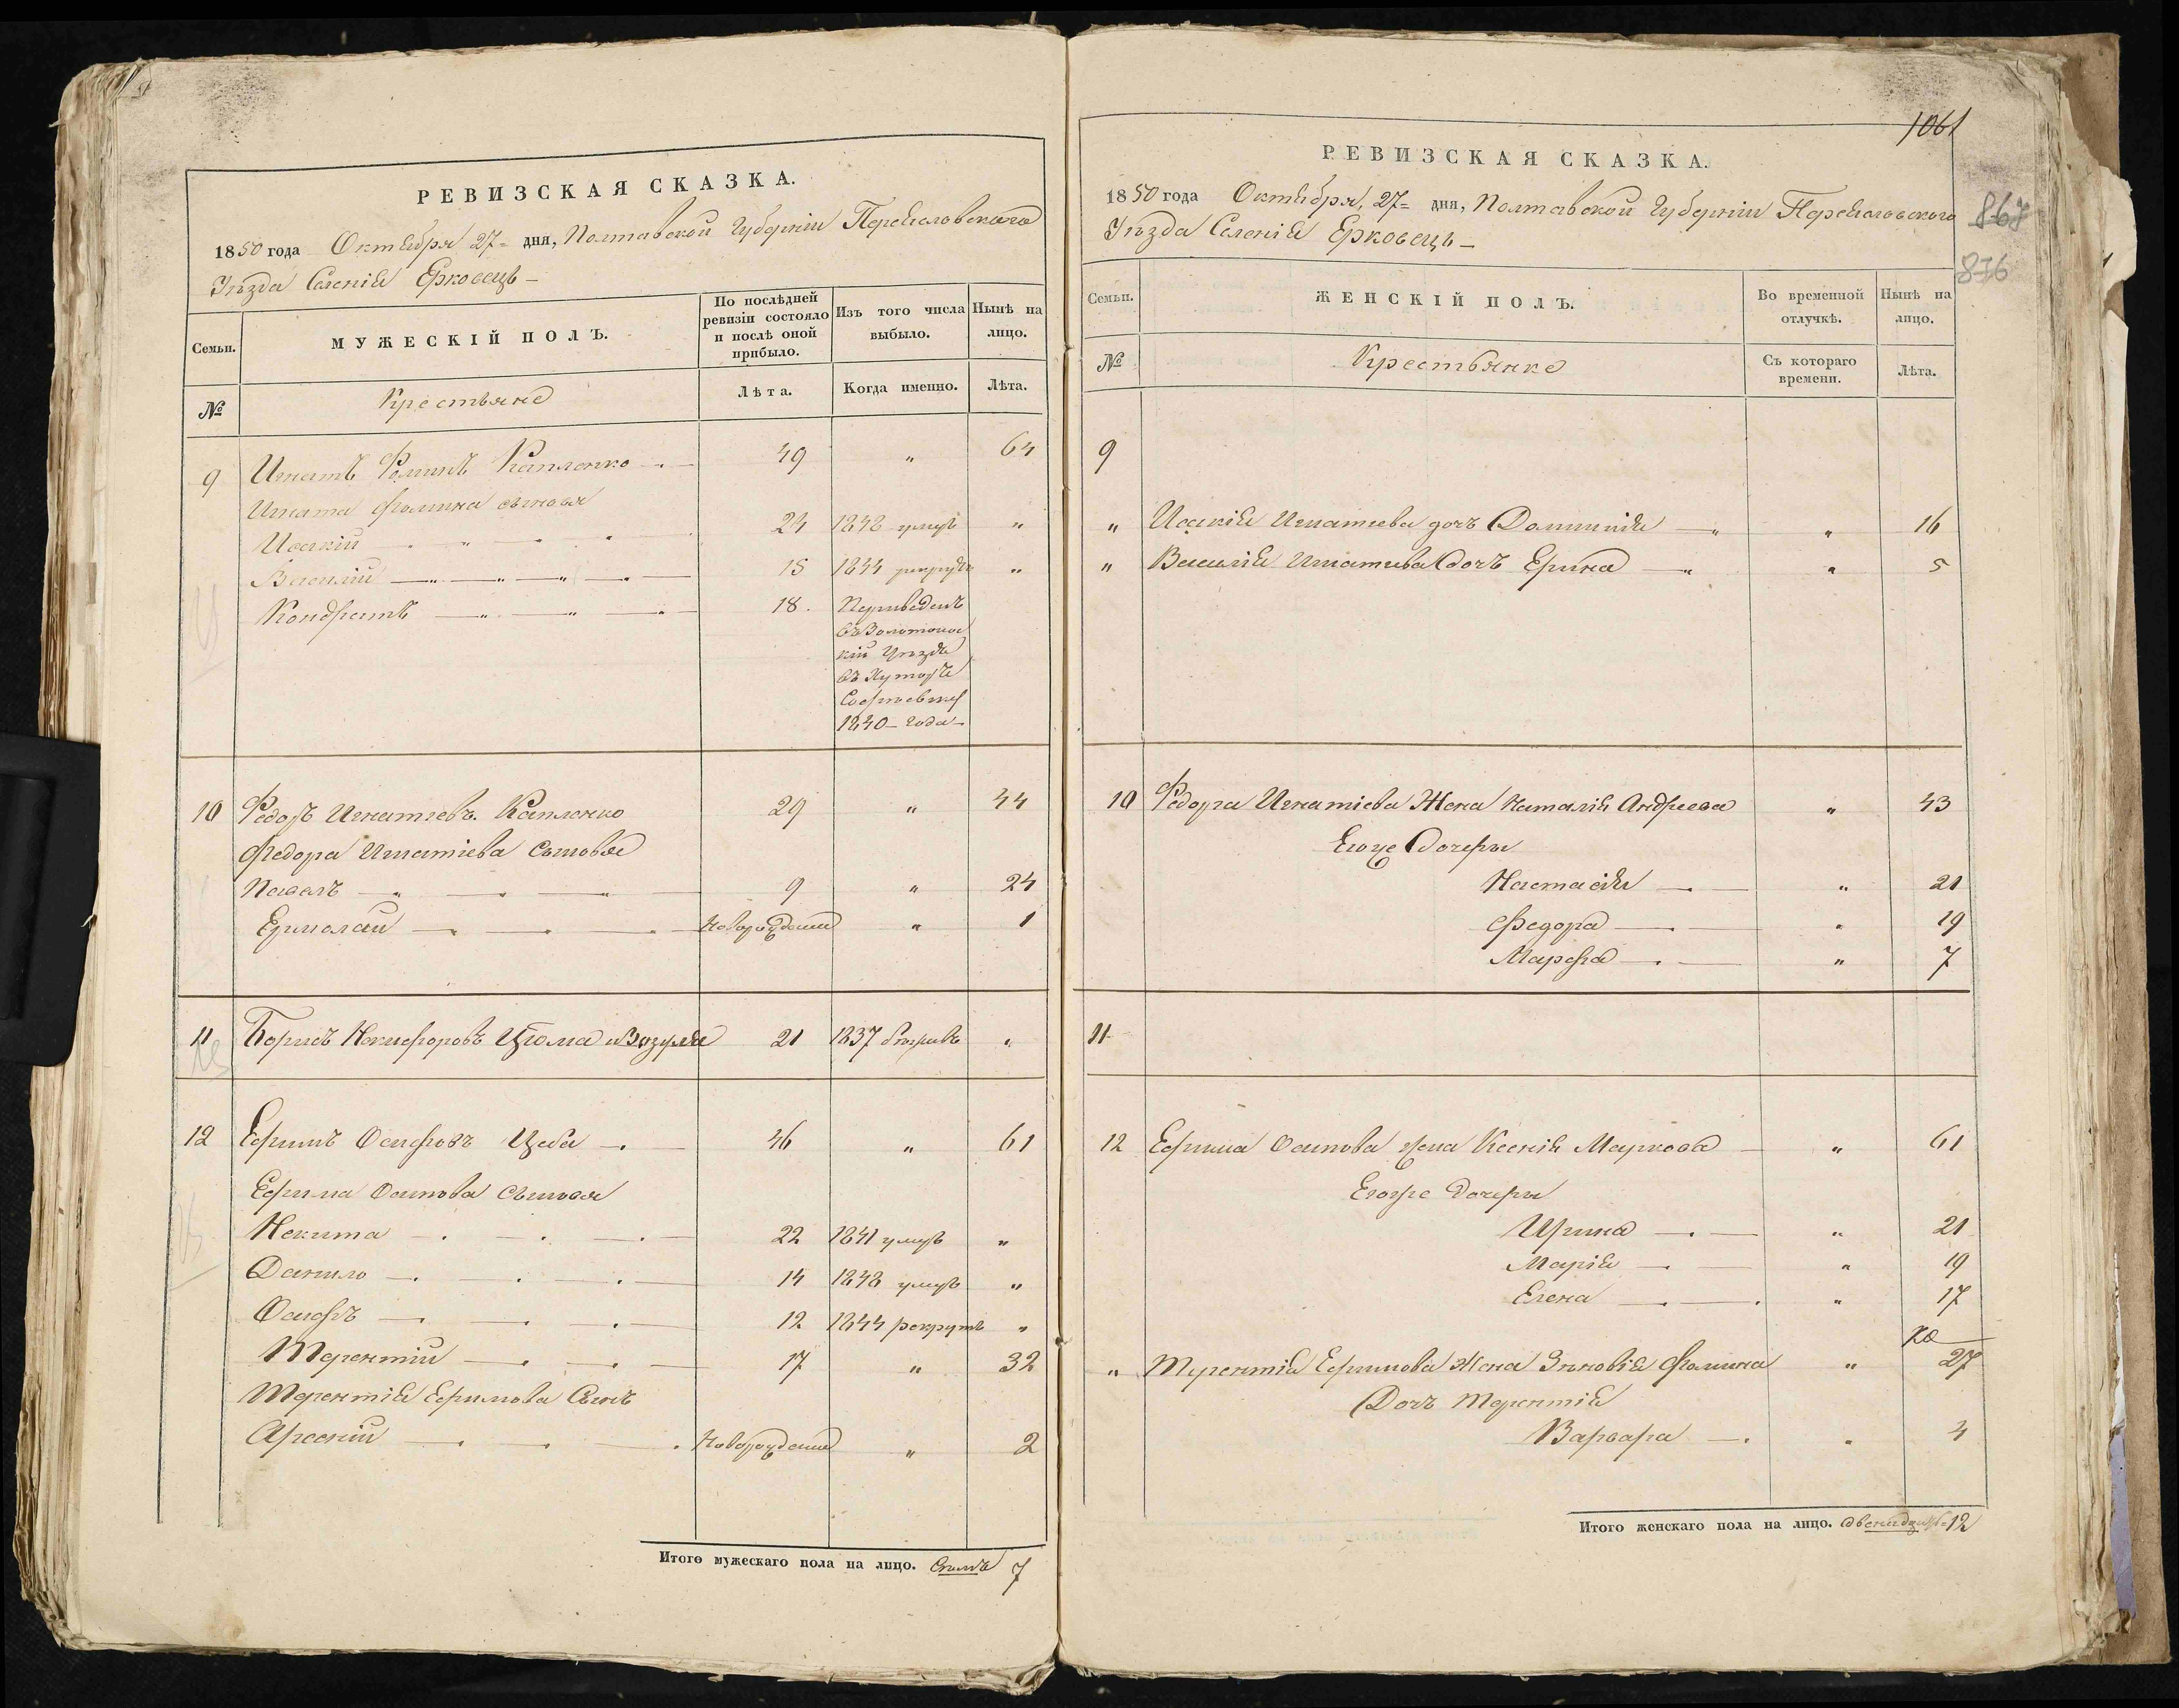 РЕВИЗСКАЯ СКАЗКА.
1850 года Октября 27 = дня, Полтавской Губерніи Переяславскаго
Уѣзда Селенія Ерковецъ —
Семьи.
МУЖЕСКІЙ ПОЛЪ.
По послѣдней ревизіи состояло и послѣ оной прибыло.
Изъ того числа выбыло.
Нынѣ на лицо.
№
Крестьяне
Лѣта.
Когда именно.
Лѣта.
9 Игнатъ Фоминъ Капленко 49 " 64
Игната Фомина сыновья
Исакій 24 1848 умре "
Василій 15 1844 рекрутъ "
Кондратъ 18. Переведенъ
въ Золотонос
кій Уѣздъ
въ Хуторъ
1840 – года –
10 Федоръ Игнатіевъ Капленко 29 " 44
Федора Игнатіева сыновья
Павелъ 9 " 24
Ермолай Новорожденный " 1
11 Борисъ Никифоровъ Цюма и Зозуля 21 1837 "
12 Ефимъ Осиповъ Цеба 46 " 61
Ефима Осипова сыновья
Некита 22 1841 умре "
Данило 14 1848 умре "
Осифъ 12 1844 рекрутъ "
Терентій 17 " 32
Терентія Ефимова Сынъ
Арсеній Новорожденный " 2
Итого мужескаго пола на лицо. Семь 7
1061
867
876
РЕВИЗСКАЯ СКАЗКА.
1850 года Октября, 27 = дня, Полтавской Губерніи Переяславскаго
Уѣзда Селенія Ерковецъ —
Семьи.
ЖЕНСКІЙ ПОЛЪ.
Во временной отлучкѣ.
Нынѣ на лицо.
№
Крестьянке
Съ котораго времени.
Лѣта.
9
" Исакія Игнатиева дочь Домникія " 16
" Василія Игнатиева дочъ Ерина " 5
10 Федора Игнатіева Жена Наталія Андреева " 43
Егоже Дочеры
Настасія " 21
Федора " 19
Марфа " 7
11
12 Ефима Осипова жена Ксенія Маркова " 61
Егоже Дочеры
Ирина " 21
Марія " 19
Елена " 17
" Терентія Ефимова Жена Зѣновія Фомина " 27
Дочъ Терентія
Варвара " 4
Итого женскаго пола на лицо. двенадцать 12